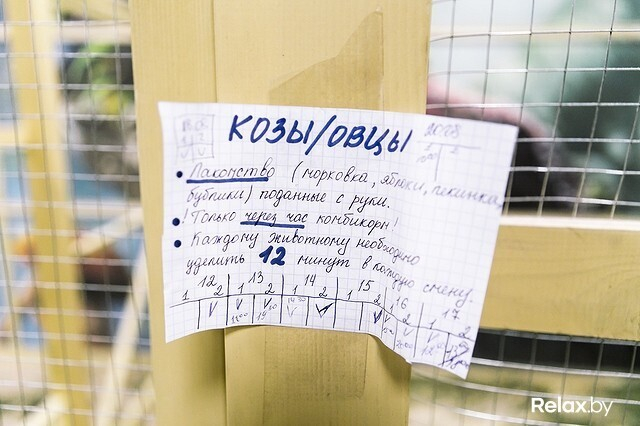 КОЗЫ/ОВЦЫ
• Лакомство (морковка, яблоки, пекинка,
бублики) поданные с руки.
• ! Только через час комбикорм!
• Каждому животному необходимо
уделить 12 минут в каждую смену.
12 13 14 15 16 17
1 2 1 2 1 2 1 2 1 2 1 2
Relax.by